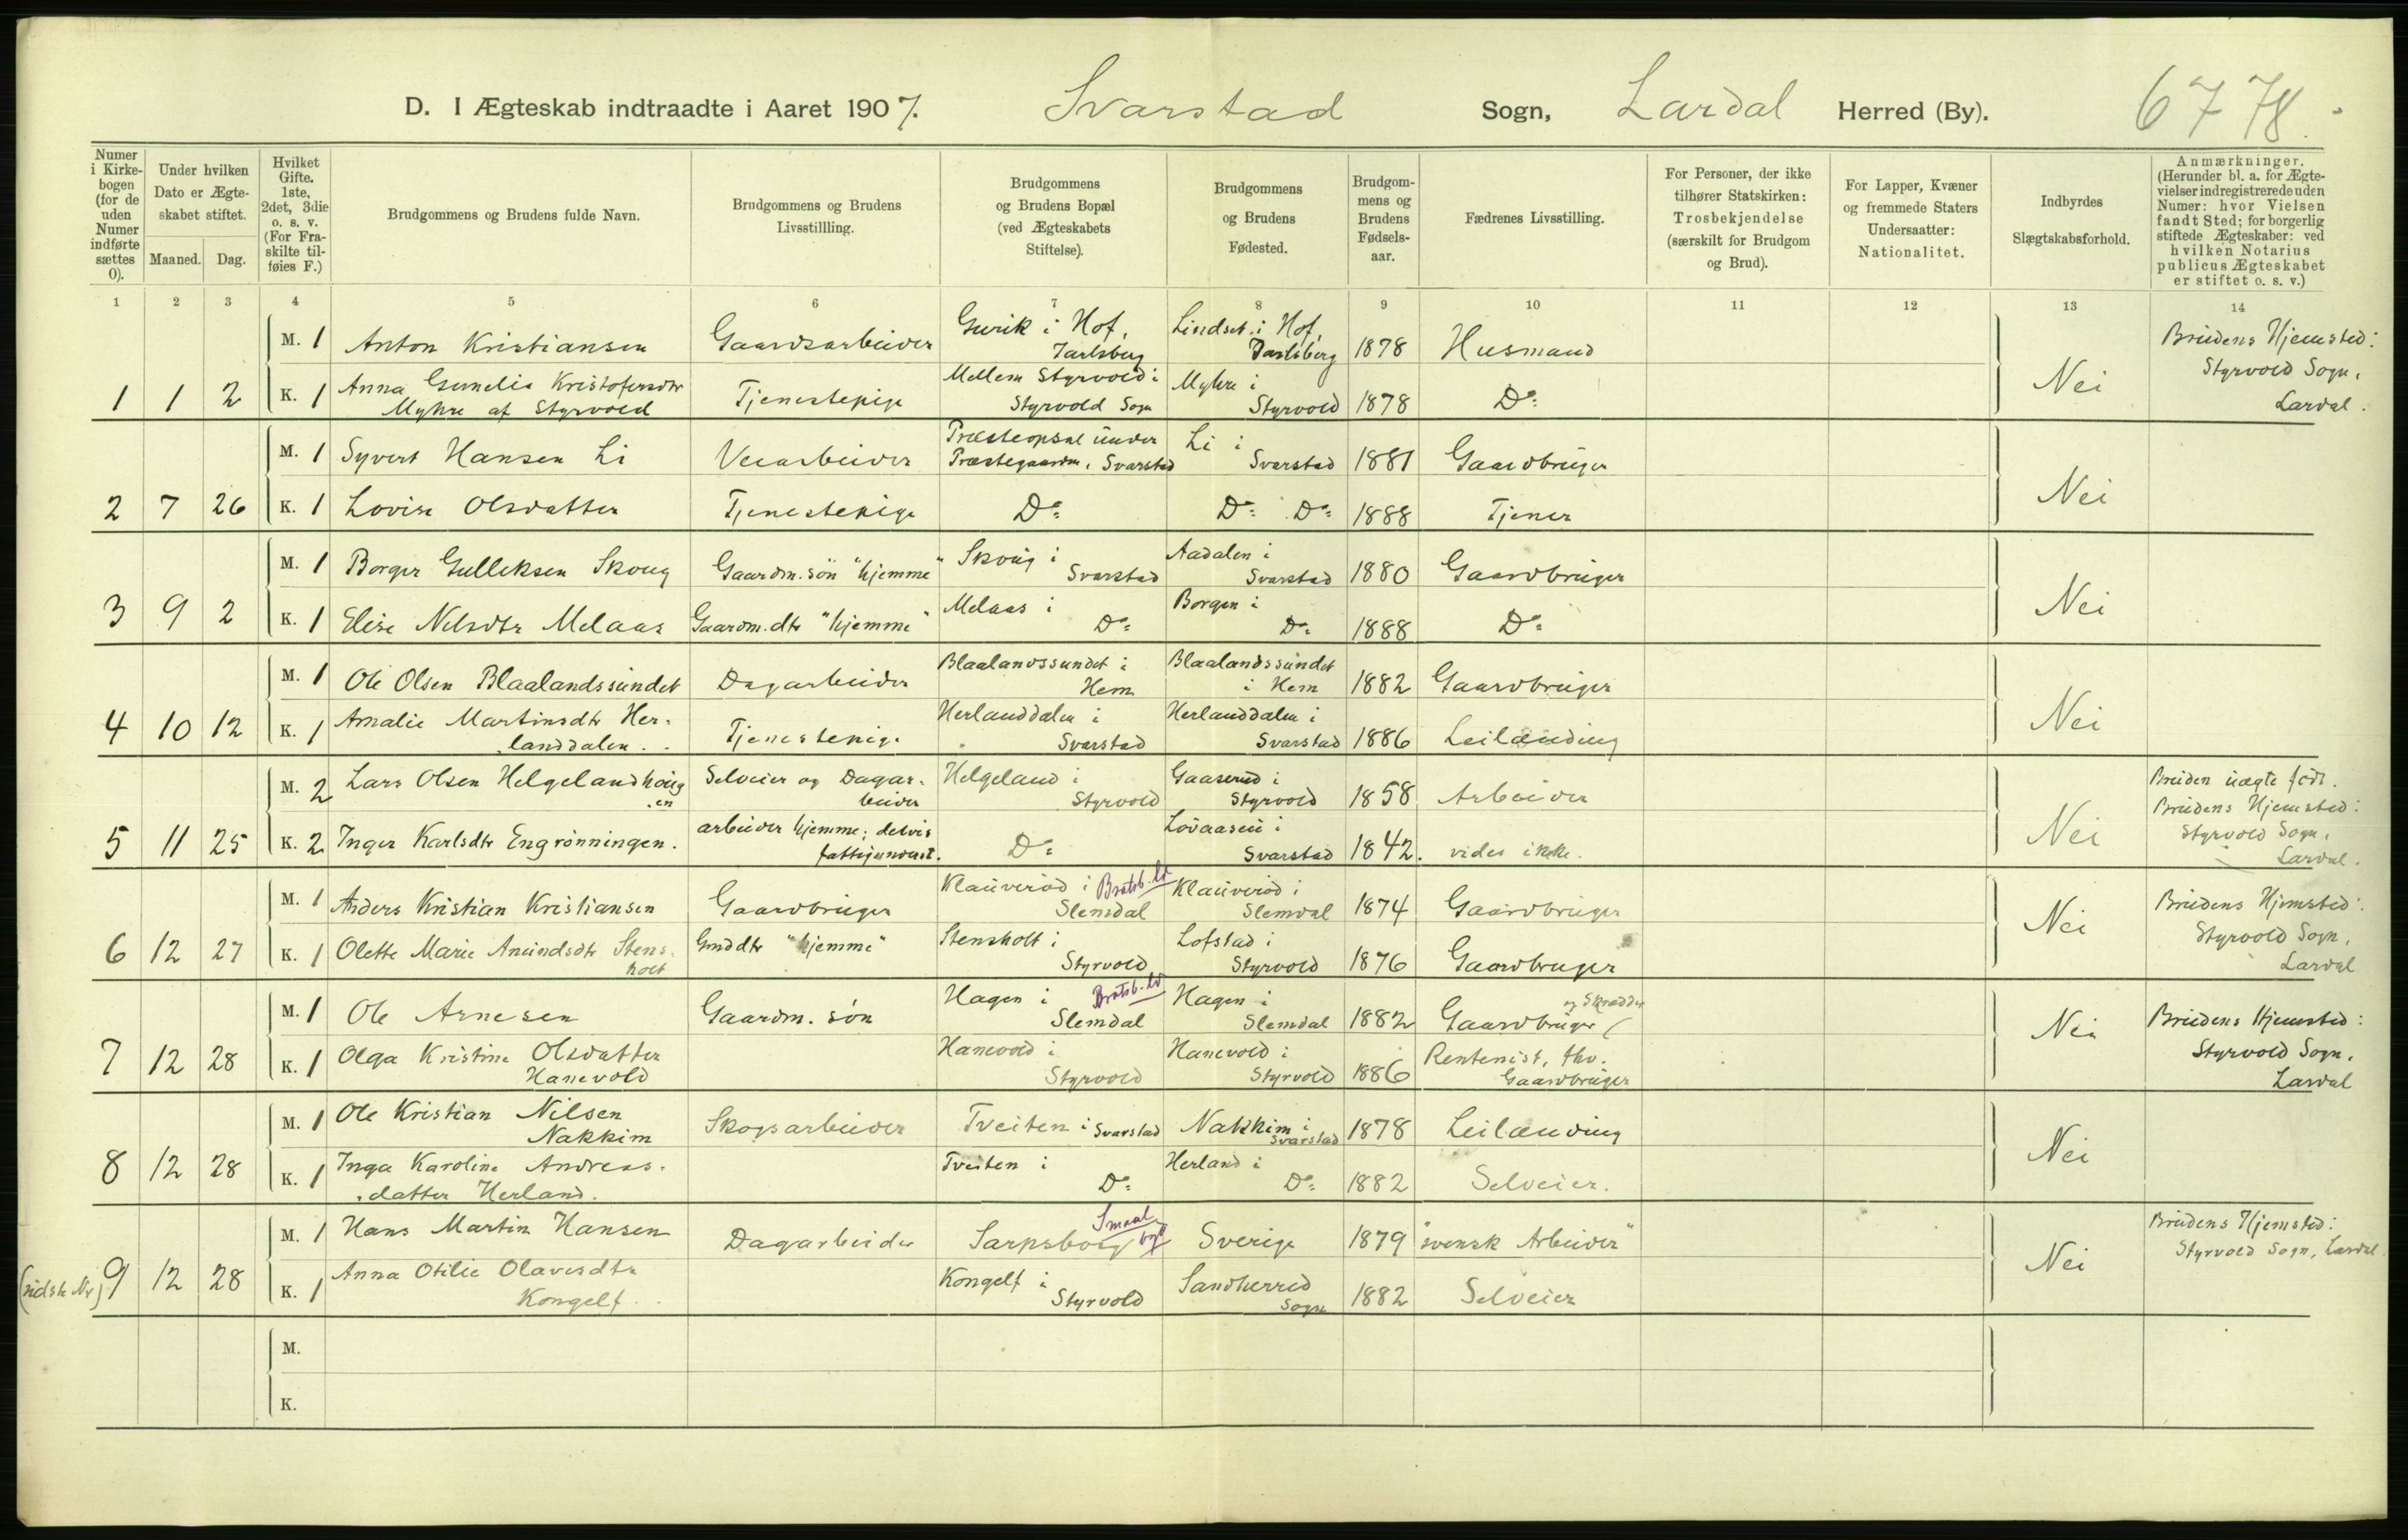 D. I Ægteskab indtraadte i Aaret 1907. Svarstad Sogn, Lardal Herred (By). 6778.
Numer i Kirkebogen (for de uden Numer indførte sættes 0).
Under hvilken Dato er Ægteskabet stiftet.
Maaned. Dag.
Hvilket Gifte. 1ste, 2det, 3die o. s. v. (For Fraskilte tilføies F.)
Brudgommens og Brudens fulde Navn.
Brudgommens og Brudens Livsstillling.
Brudgommens og Brudens Bopæl (ved Ægteskabets Stiftelse).
Brudgommens og Brudens Fødested.
Brudgommens og Brudens Fødselsaar.
Fædrenes Livsstilling.
For Personer, der ikke tilhører Statskirken: Trosbekjendelse (særskilt for Brudgom og Brud).
For Lapper, Kvæner og fremmede Staters Undersaatter: Nationalitet.
Indbyrdes Slægtskabsforhold.
Anmærkninger. (Herunder bl. a. for Ægtevielser indregistrerede uden Numer: hvor Vielsen fandt Sted; for borgerlig stiftede Ægteskaber: ved hvilken Notarius publicus Ægteskabet er stiftet o. s. v.)
1 2 3 4 5 6 7 8 9 10 11 12 13 14
M. 1 Anton Kristiansen Gaardsarbeider Gurik i Hof, Jarlsberg Lindset i Hof, Jarlsberg 1878 Husmand
1 1 2 K. 1 Anna Gunelie Kristofersdtr Myhre af Styrvold Tjenestepige Mellem Styrvold i Styrvold Sogn Myhre i Styrvold 1878 Do Nei Brudens Hjemsted: Styrvold Sogn, Lardal.
M. 1 Syvert Hansen Li Veiarbeider under Præstegaarden, Svarstad Li i Svarstad 1881 Gaardbruger
2 7 26 K. 1 Lovise Olsdatter Tjenestepige Do Do Do 1888 Tjener Nei
M. 1 Borger Gulleksen Skoug Gaardm. søn "hjemme" Skoug i Svarstad Aadalen i Svarstad 1880 Gaardbruger
3 9 2 K. 1 Elise Nelsdtr Melaas Gaardm. dtr "hjemme" Melaas i Do Borgen i Do 1888 Do Nei
M. 1 Ole Olsen Blaalandssundet Dagarbeider Blaalandssundet i Hem Blaalandssundet i Hem 1882 Gaardbruger
4 10 12 K. 1 Amalie Martinsdtr Herlanddalen. Tjenestepige Herlanddalen i Svarstad Herlanddalen i Svarstad 1886 Leilænding Nei
M. 2 Lars Olsen Helgelandhougen Selveier og Dagarbeider Helgeland i Styrvold Gaaserud i Styrvold 1858 Arbeider
5 11 25 K. 2 Inger Karlsdtr Engrønningen. arbeider hjemme; delvis fattigunderst. Do Lovaasen i Svarstad 1842. vides ikke. Nei Bruden uægte født. Brudens Hjemsted: Styrvold Sogn, Lardal.
M. 1 Anders Kristian Kristiansen Gaardbruger Klauverød i Slemdal Bratsb. Klauverød i Slemdal 1874 Gaardbruger
6 12 27 K. 1 Olette Marie Amundsdtr Stensholt Gmddtr "hjemme" Stensholt i Styrvold Lofstad i Styrvold 1876 Gaardbruger Nei Brudens Hjemsted: Styrvold Sogn, Lardal
M. 1 Ole Arnesen Gaardm. søn Hagen i Slemdal Bratsb. Hagen i Slemdal 1882 Gaardbruger og Skrædder
7 12 28 K. 1 Olga Kristine Olsdatter Hanevold Hanevold i Styrvold Hanevold i Styrvold 1886 Rentenist, fhv. Gaardbruger Nei Brudens Hjemsted: Styrvold Sogn, Lardal
M. 1 Ole Kristian Nilsen Nakkim Skogsarbeider Tveiten i Svarstad Nakkim i Svarstad 1878 Leilænding
8 12 28 K. 1 Inga Karoline Andreasdatter Herland. Tveiten i Do Herland i Do 1882 Selveier. Nei
M. 1 Hans Martin Hansen Dagarbeider Sarpsborg Smaal. Sverige 1879 "svensk Arbeider"
(sidste Nr) 9 12 28 K. 1 Anna Otilie Olavesdtr Kongelf. Kongelf i Styrvold Sandherred Sogn 1882 Selveier Nei Brudens Hjemsted: Styrvold Sogn, Lardal.
M.
K.